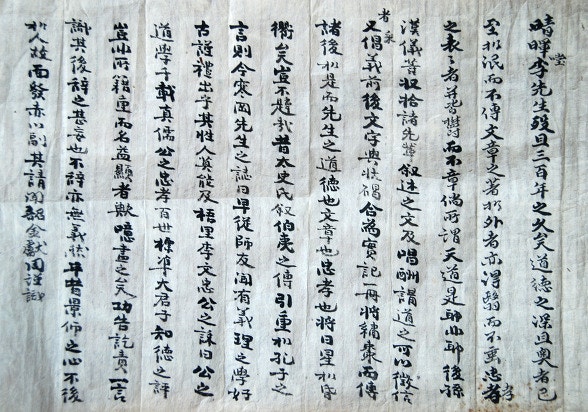 晴暉堂李先生歿且三百年之久矣道德之深且奧者已
至於泯而不傳文章之著於外者亦得翳而不忠孝者
之表之者幷皆鬱而不章倘所謂天道是耶非耶後孫
漢儀等収拾諸先輩叙述之文及唱酬謂道之可以徵信
者采又倡義前後文字與狀碣合為實記一冊將繡棗而傳
諸後於是而先生之道德也文章也忠孝也將日星於昏
衢矣豈不韙哉昔太史氏叙伯夷之傳引重於孔子之
言則今寒岡先生之誌曰早從師友聞有義理之學好
古謹禮出乎其性人莫能及梧里李文忠公之誄曰公之
道學予戴真儒公之忠孝百世標準大君子知德之評
豈非所籍重而名益顯者歟噫盡之矣功告訖責一言
識其後辞之甚妄也不辞亦無義惟景仰之心不後
於人故而以副其請聞韶金獻周謹識